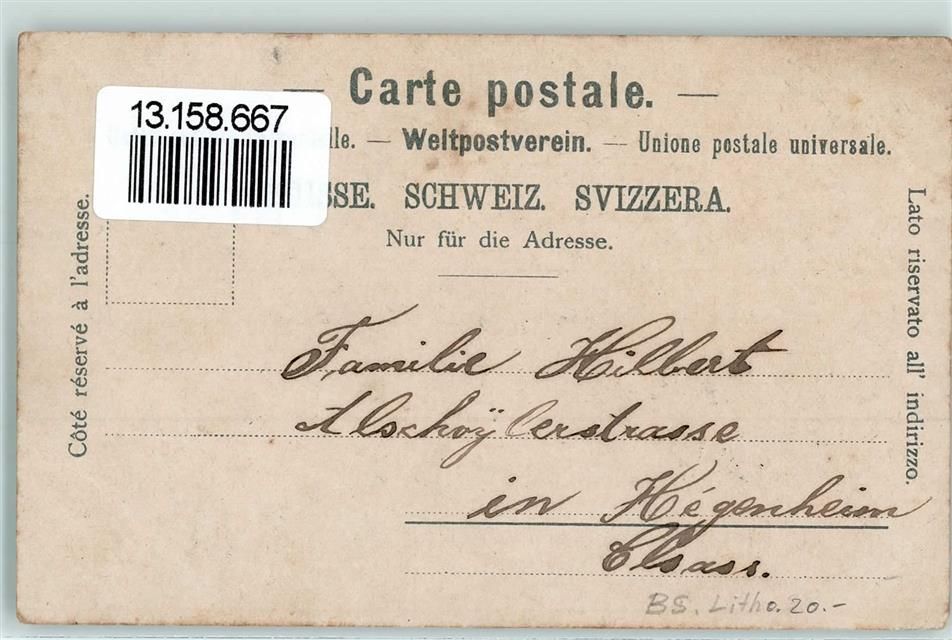 13.158.667
— Carte postale. —
lle. — Weltpostverein. — Unione postale universale.
SSE. SCHWEIZ. SVIZZERA.
Nur für die Adresse.
Côté réservé à l'adresse.
Lato riservato all' indirizzo.
Familie Hilbert
Alschöÿlerstrasse
in Hégenheim
Elsass.
BS. Litho. 20.-